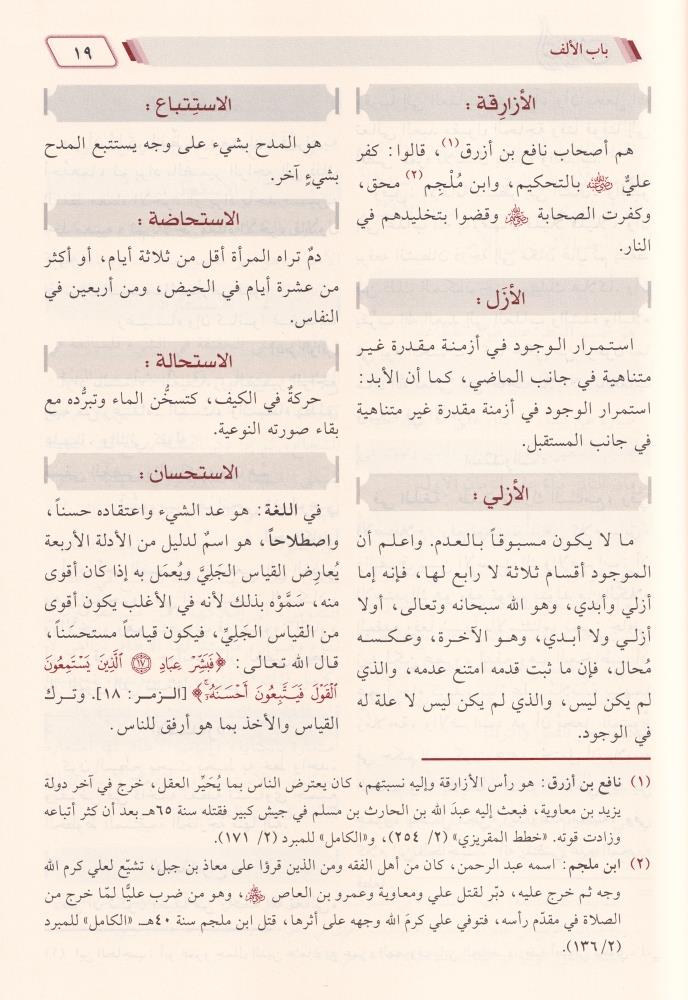 باب الألف
١٩
الأزارِقة :
هم أصحاب نافع بن أزرق(١)، قالوا: كفر
عليٌّ رضي الله عنه بالتحكيم، وابن مُلْجِم(٢) محق،
وكفرت الصحابة رضي الله عنهم وقضوا بتخليدهم في
النار.
الأزَل :
استمرار الوجود في أزمنة مقدرة غير
متناهية في جانب الماضي، كما أن الأبد:
استمرار الوجود في أزمنة مقدرة غير متناهية
في جانب المستقبل.
الأزلي :
ما لا يكون مسبوقاً بالعدم. واعلم أن
الموجود أقسام ثلاثة لا رابع لها، فإنه إما
أزلي وأبدي، وهو الله سبحانه وتعالى، أولا
أزلي ولا أبدي، وهو الآخرة، وعكسه
مُحال، فإن ما ثبت قدمه امتنع عدمه، والذي
لم يكن ليس، والذي لم يكن ليس لا علة له
في الوجود.
الاستِتباع :
هو المدح بشيء على وجه يستتبع المدح
بشيءٍ آخر.
الاستحاضة :
دمٌ تراه المرأة أقل من ثلاثة أيام، أو أكثر
من عشرة أيام في الحيض، ومن أربعين في
النفاس.
الاستحالة :
حركةٌ في الكيف، كتسخُّن الماء وتبرُّده مع
بقاء صورته النوعية.
الاستحسان :
في اللغة: هو عد الشيء واعتقاده حسناً،
واصطلاحاً، هو اسمٌ لدليل من الأدلة الأربعة
يُعارِض القياس الجَلِيَّ ويُعمَل به إذا كان أقوى
منه، سَمَّوْه بذلك لأنه في الأغلب يكون أقوى
من القياس الجَلِيِّ، فيكون قياساً مستحسَناً،
قال الله تعالى: ﴿فَبَشِّرْ عِبَادِ ١٧ ٱلَّذِينَ يَسْتَمِعُونَ
ٱلْقَوْلَ فَيَتَّبِعُونَ أَحْسَنَهُۥٓۚ﴾ [الزمر: ١٨]. وترك
القياس والأخذ بما هو أرفق للناس.
(١) نافع بن أزرق: هو رأس الأزارقة وإليه نسبتهم، كان يعترض الناس بما يُحَيِّر العقل، خرج في آخر دولة
يزيد بن معاوية، فبعث إليه عبدَ الله بن الحارث بن مسلم في جيش كبير فقتله سنة ٦٥هـ بعد أن كثر أتباعه
وزادت قوته. «خطط المقريزي» (٢/ ٢٥٤)، و«الكامل» للمبرد (٢/ ١٧١).
(٢) ابن ملجم: اسمه عبد الرحمن، كان من أهل الفقه ومن الذين قرؤا على معاذ بن جبل، تشيّع لعلي كرم الله
وجه ثم خرج عليه، دبّر لقتل علي ومعاوية وعمرو بن العاص رضي الله عنهم، وهو من ضرب عليًّا لمّا خرج من
الصلاة في مقدّم رأسه، فتوفي علي كرمَ الله وجهه على أثرها، قتل ابن ملجم سنة ٤٠هـ «الكامل» للمبرد
(٢/ ١٣٦).